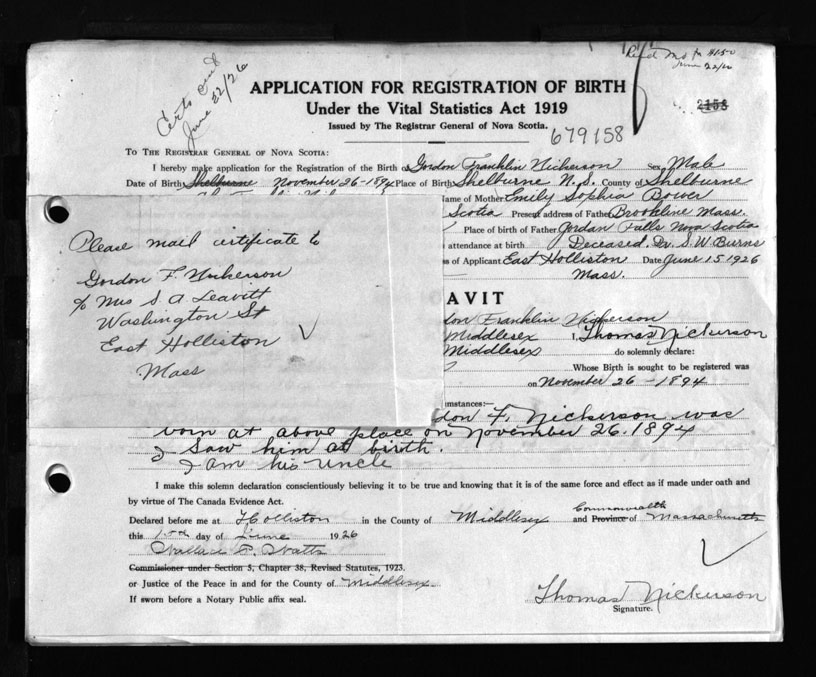 Certs sent
June 22/26
Rec'd M.O. for $1.50
June 22/26
APPLICATION FOR REGISTRATION OF BIRTH
Under the Vital Statistics Act 1919
Issued by The Registrar General of Nova Scotia.
2153
679158
TO THE REGISTRAR GENERAL OF NOVA SCOTIA:
I hereby make application for the Registration of the Birth of Gordon Franklin Nickerson Sex Male
Date of Birth Shelburne November 26-1894 Place of Birth Shelburne N.S. County of Shelburne
Name of Mother Emily Sophia Bower
Scotia Present address of Father Brookline Mass.
Place of birth of Father Jordan Falls Nova Scotia
attendance at birth Deceased. Dr. S. W. Burns
of Applicant East Holliston Date June 15 1926
Mass.
Please mail certificate to
Gordon F. Nickerson
c/o Mrs S. A Leavitt
Washington St
East Holliston
Mass
AVIT
don Franklin Nickerson
Middlesex I, Thomas Nickerson
Middlesex do solemnly declare:
Whose Birth is sought to be registered was
on November 26-1894
mstances:—
don F. Nickerson was
born at above place on November 26.1894
I saw him at birth.
I am his uncle
I make this solemn declaration conscientiously believing it to be true and knowing that it is of the same force and effect as if made under oath and
by virtue of The Canada Evidence Act.
Declared before me at Holliston in the County of Middlesex and Province of Commonwealth Massachusetts
this 15th day of June 1926
Wallace P. Watts
Commissioner under Section 5, Chapter 38, Revised Statutes, 1923.
or Justice of the Peace in and for the County of Middlesex.
If sworn before a Notary Public affix seal.
Thomas Nickerson
Signature.